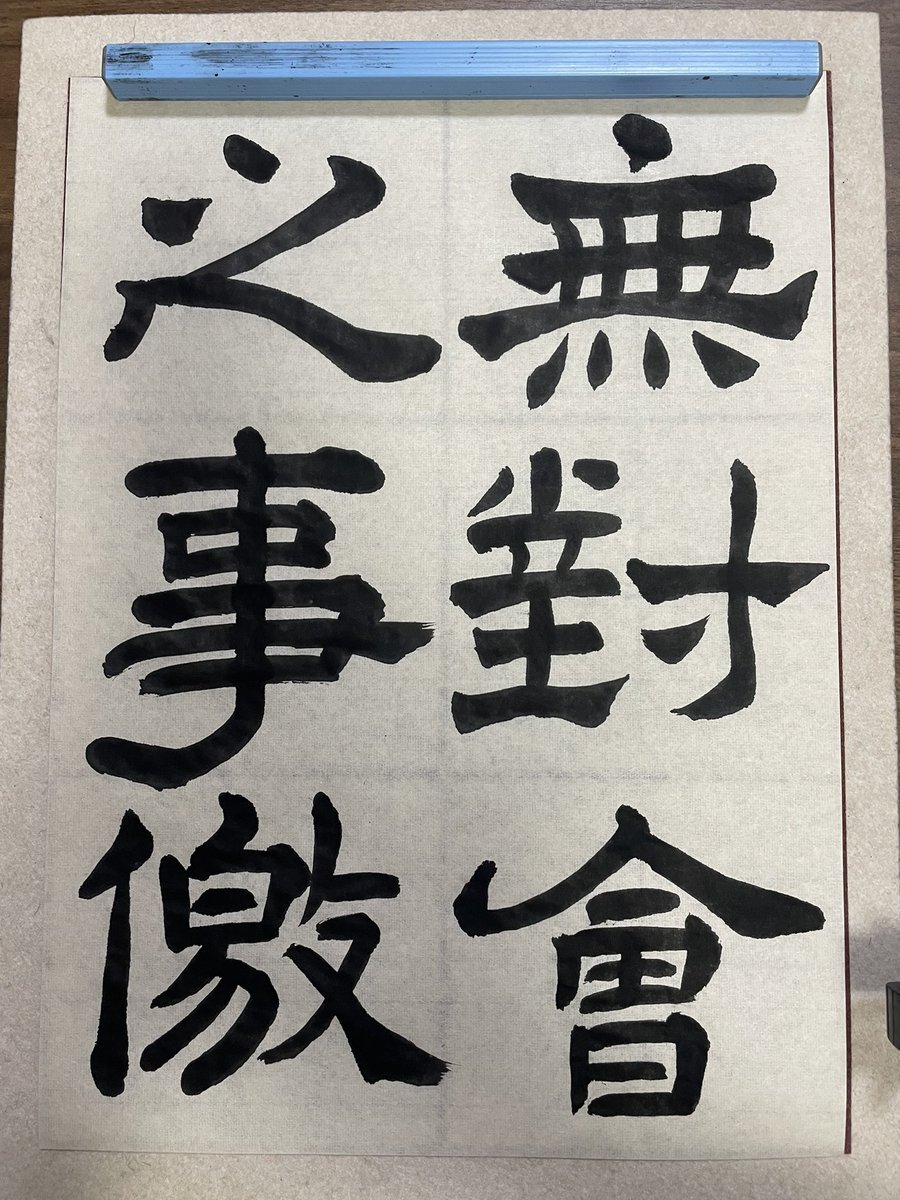 無對會
之事儌